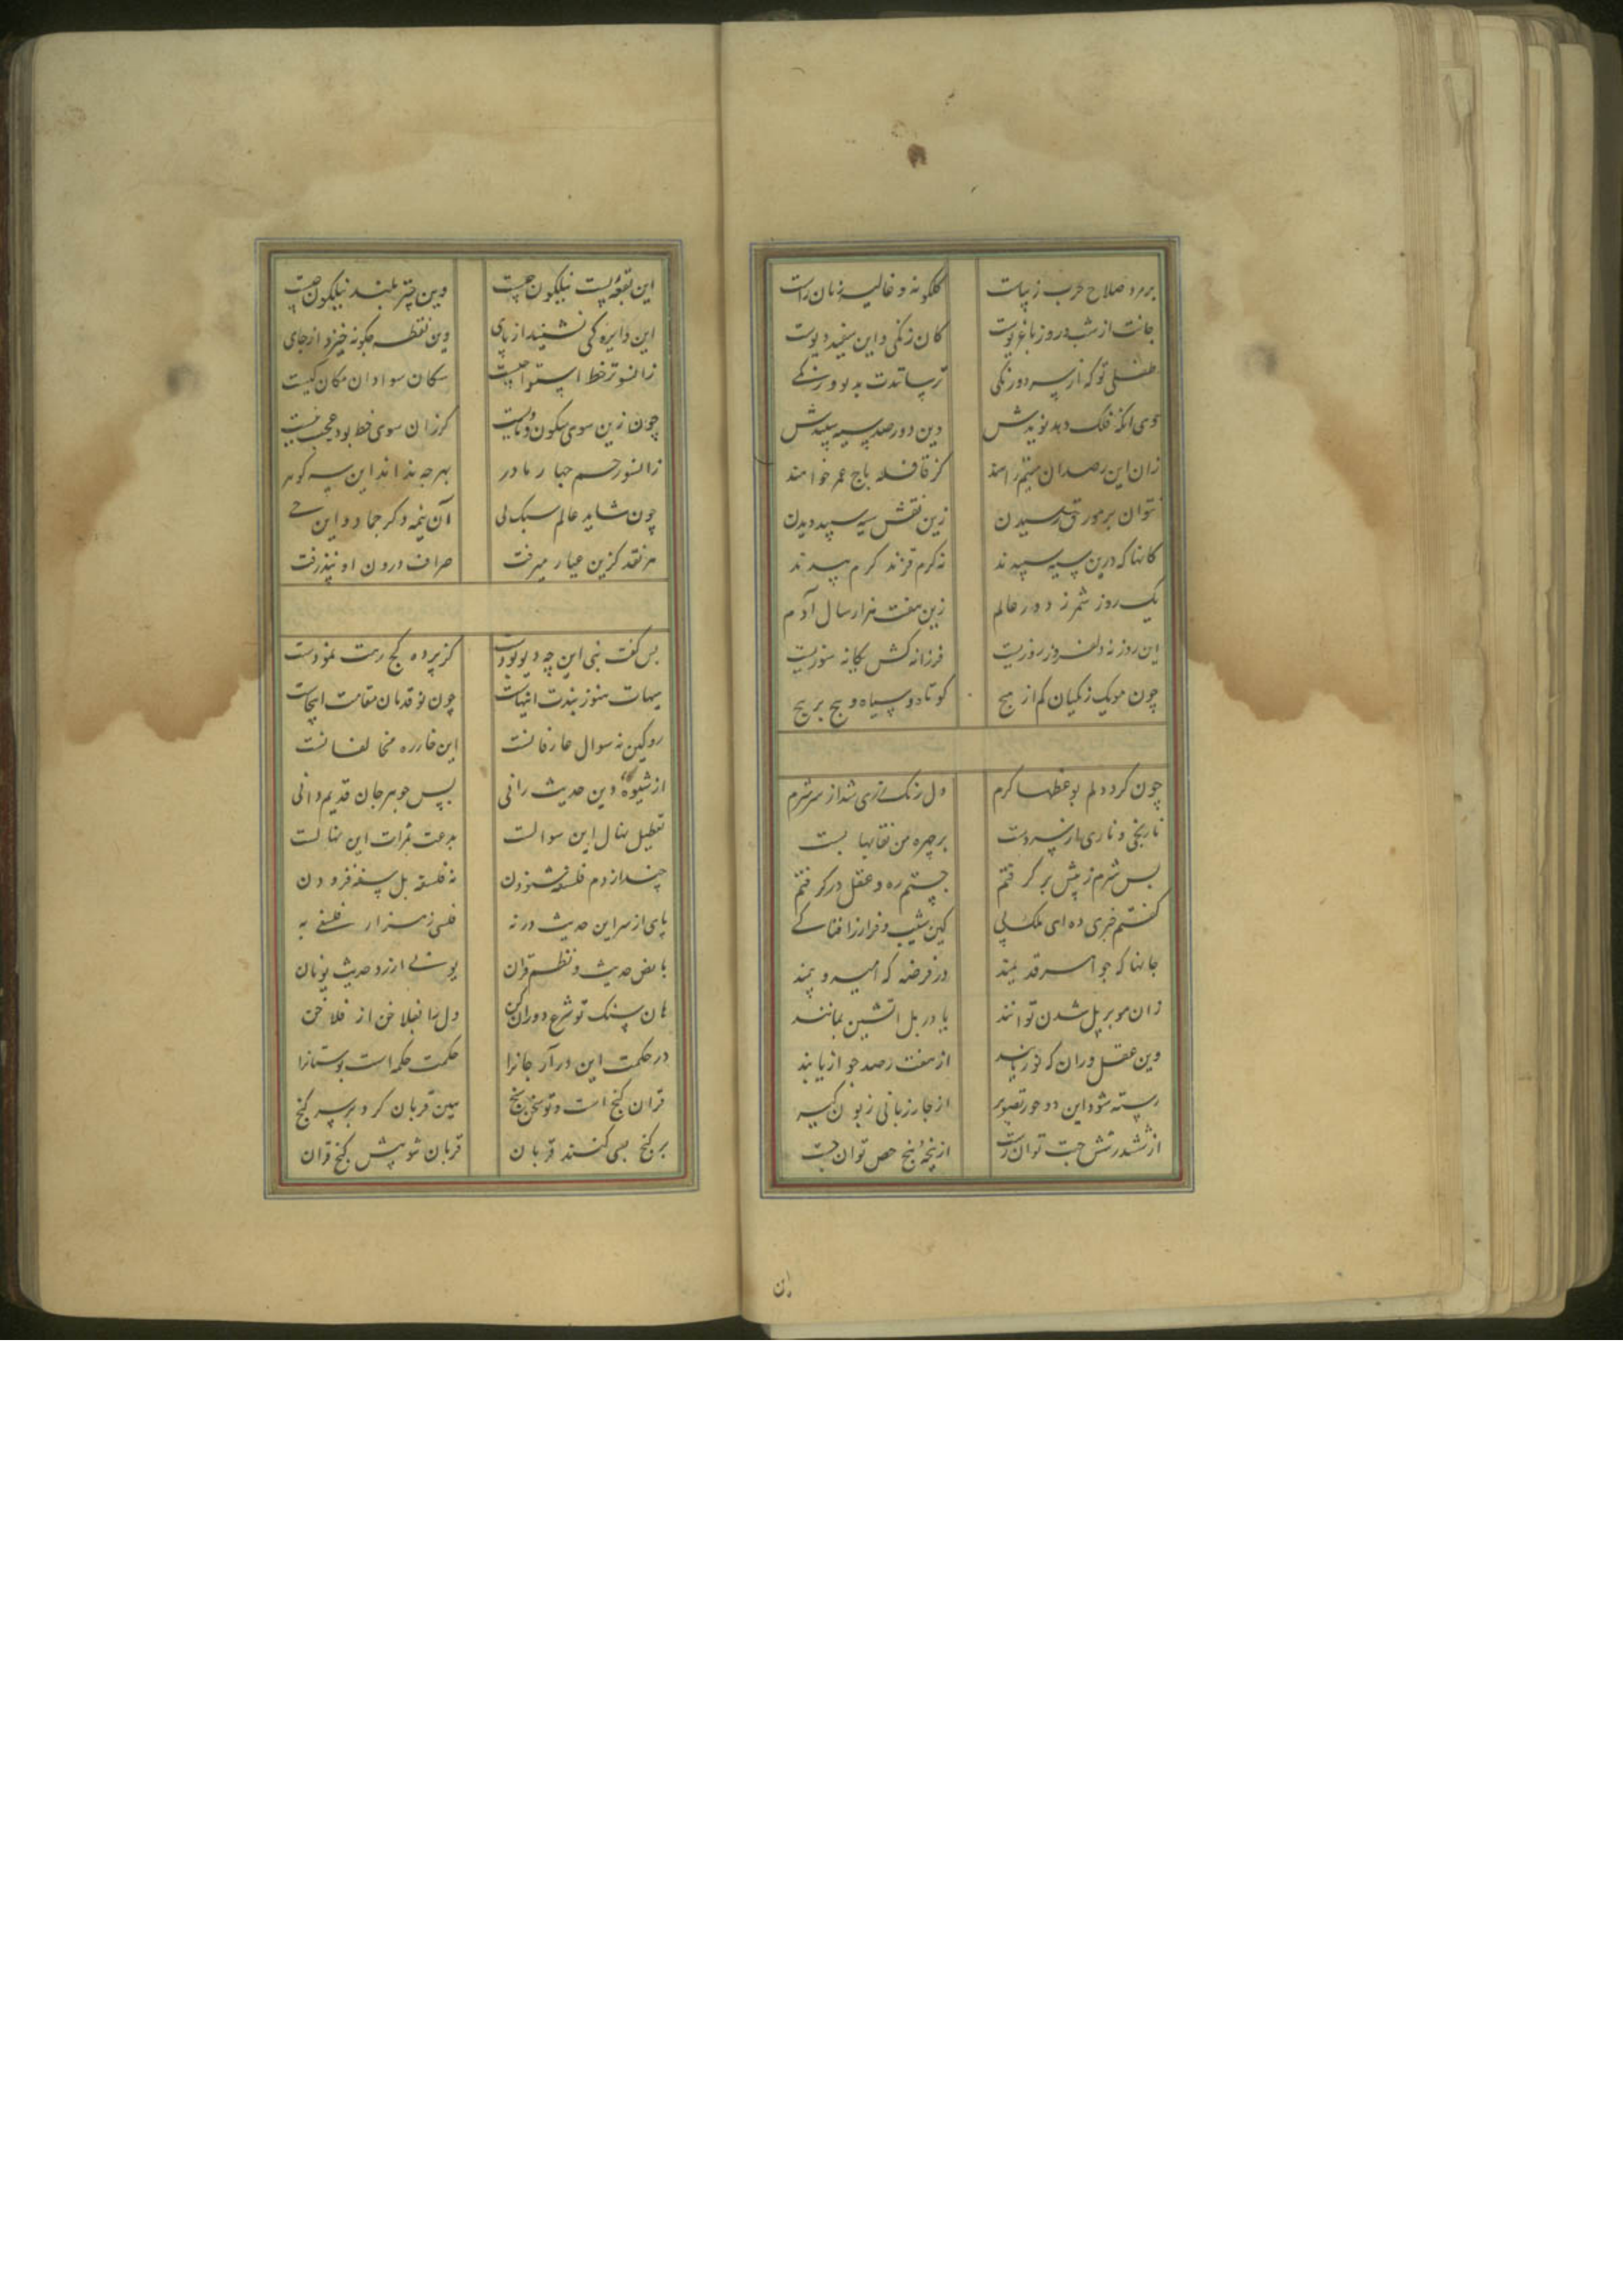 برمرد صلاح حرب زیباست گلگونه و غالیه زنان راست
جانت از شب و روز باغریوست کان زنگی و این سفید دیوست
طفلی تو که از سه دو رنگی ترساندت بدو ورنگی
وی آنکه فلک دهد نویدش دین دور صد سیه سپیدش
زان این رصدان ستم رانند کز قافله باج عمر خواهند
نتوان برموز حق رسیدن زین نقش سیه سپید دیدن
کانها که درین سیه سپیدند نه کرم قزند کرم بیدند
یک روز شمر ز دور عالم زین هفت هزار سال آدم
این روز نه دلفروز روزیست فرزانه کش یگانه سوزیست
چون مویک زنگیان کم از هیچ کوتاه و سیاه و پیچ بر پیچ
چون کرد دلم بوعظها گرم دل رنگ رزی شد از سر شرم
نارنجی و ناری از سر دست بر چهره من نقابها بست
پس شرم ز پیش بر گرفتم چشم ره و عقل در گرفتم
گفتم خبری ده ای ملک پی کین شیب و فراز را فنا کی
جانها که جواسر قدیمند در فرضه که امید و بیمند
زان مو بر پل شدن توانند یا در پل آتشین بمانند
وین عقل وران که نو رسیدند از هفت رصد جواز یابند
رسته شود این دو حور تصویر از چار زبانی زبون گیر
از ششدر شش جهت توان رست از پنجه پنج حس توان جست
ان
این بقعه پست نیلگون چیست وین چتر بلند نیلگون چیست
این دایره کی نشیند از پای وین نقطه چگونه خیزد از جای
زانسوتر خط استوا چیست سکان سواد آن مکان کیست
چون زین سوی سکون وبات گرزان سوی خط بود عجب نیست
زانسو رحم چهار مادر بهر چه بداند این سه گوهر
چون شاید عالم سبک لی آن نیمه دگر جماد و این حی
هر نقد کزین عیار میرفت صراف درون او نپذرفت
پس گفت نبی این چه دیو بودست کز پرده کج رهت نمودست
هیهات هنوز بندت آنهاست چون نو قدمان مقامت اینجاست
رو کین نه سوال عارفانست این خار ره مخالفانست
از شیوه دین حدیث رانی پس جوهر جان قدیم دانی
تعطیل نهال این سوالست بدعت ثمرات این نهالست
چند از دم فلسفه شنودن نه فلسفه بل سفه فزودن
پای از سر این حدیث در نه فلسی ز هزار فلسفی به
با نص حدیث و نظم قران یونی ارزد حدیث یونان
هان سنگ تو شرع دوران کن دل را بفلاخن از فلاخن
در حکمت این درآر جانرا حکمت حکمه است بوستانرا
قران گنج است و تو سخن سنج هین قربان کرد بر سر گنج
بر گنج بسی کنند قربان قربان شو پیش گنج قران